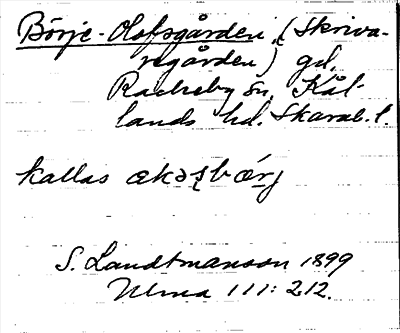 Börje-Olofsgården (Skriva-
regården) gd,
Rackeby sn, Kål-
lands hd. Skarab. l.
kallas
S. Landtmanson 1899
Ulma 111:212.